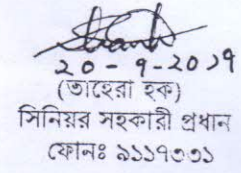 20-9-2019
(তাহেরা হক)
সিনিয়র সহকারী প্রধান
ফোনঃ ৯১১৭৩৩১